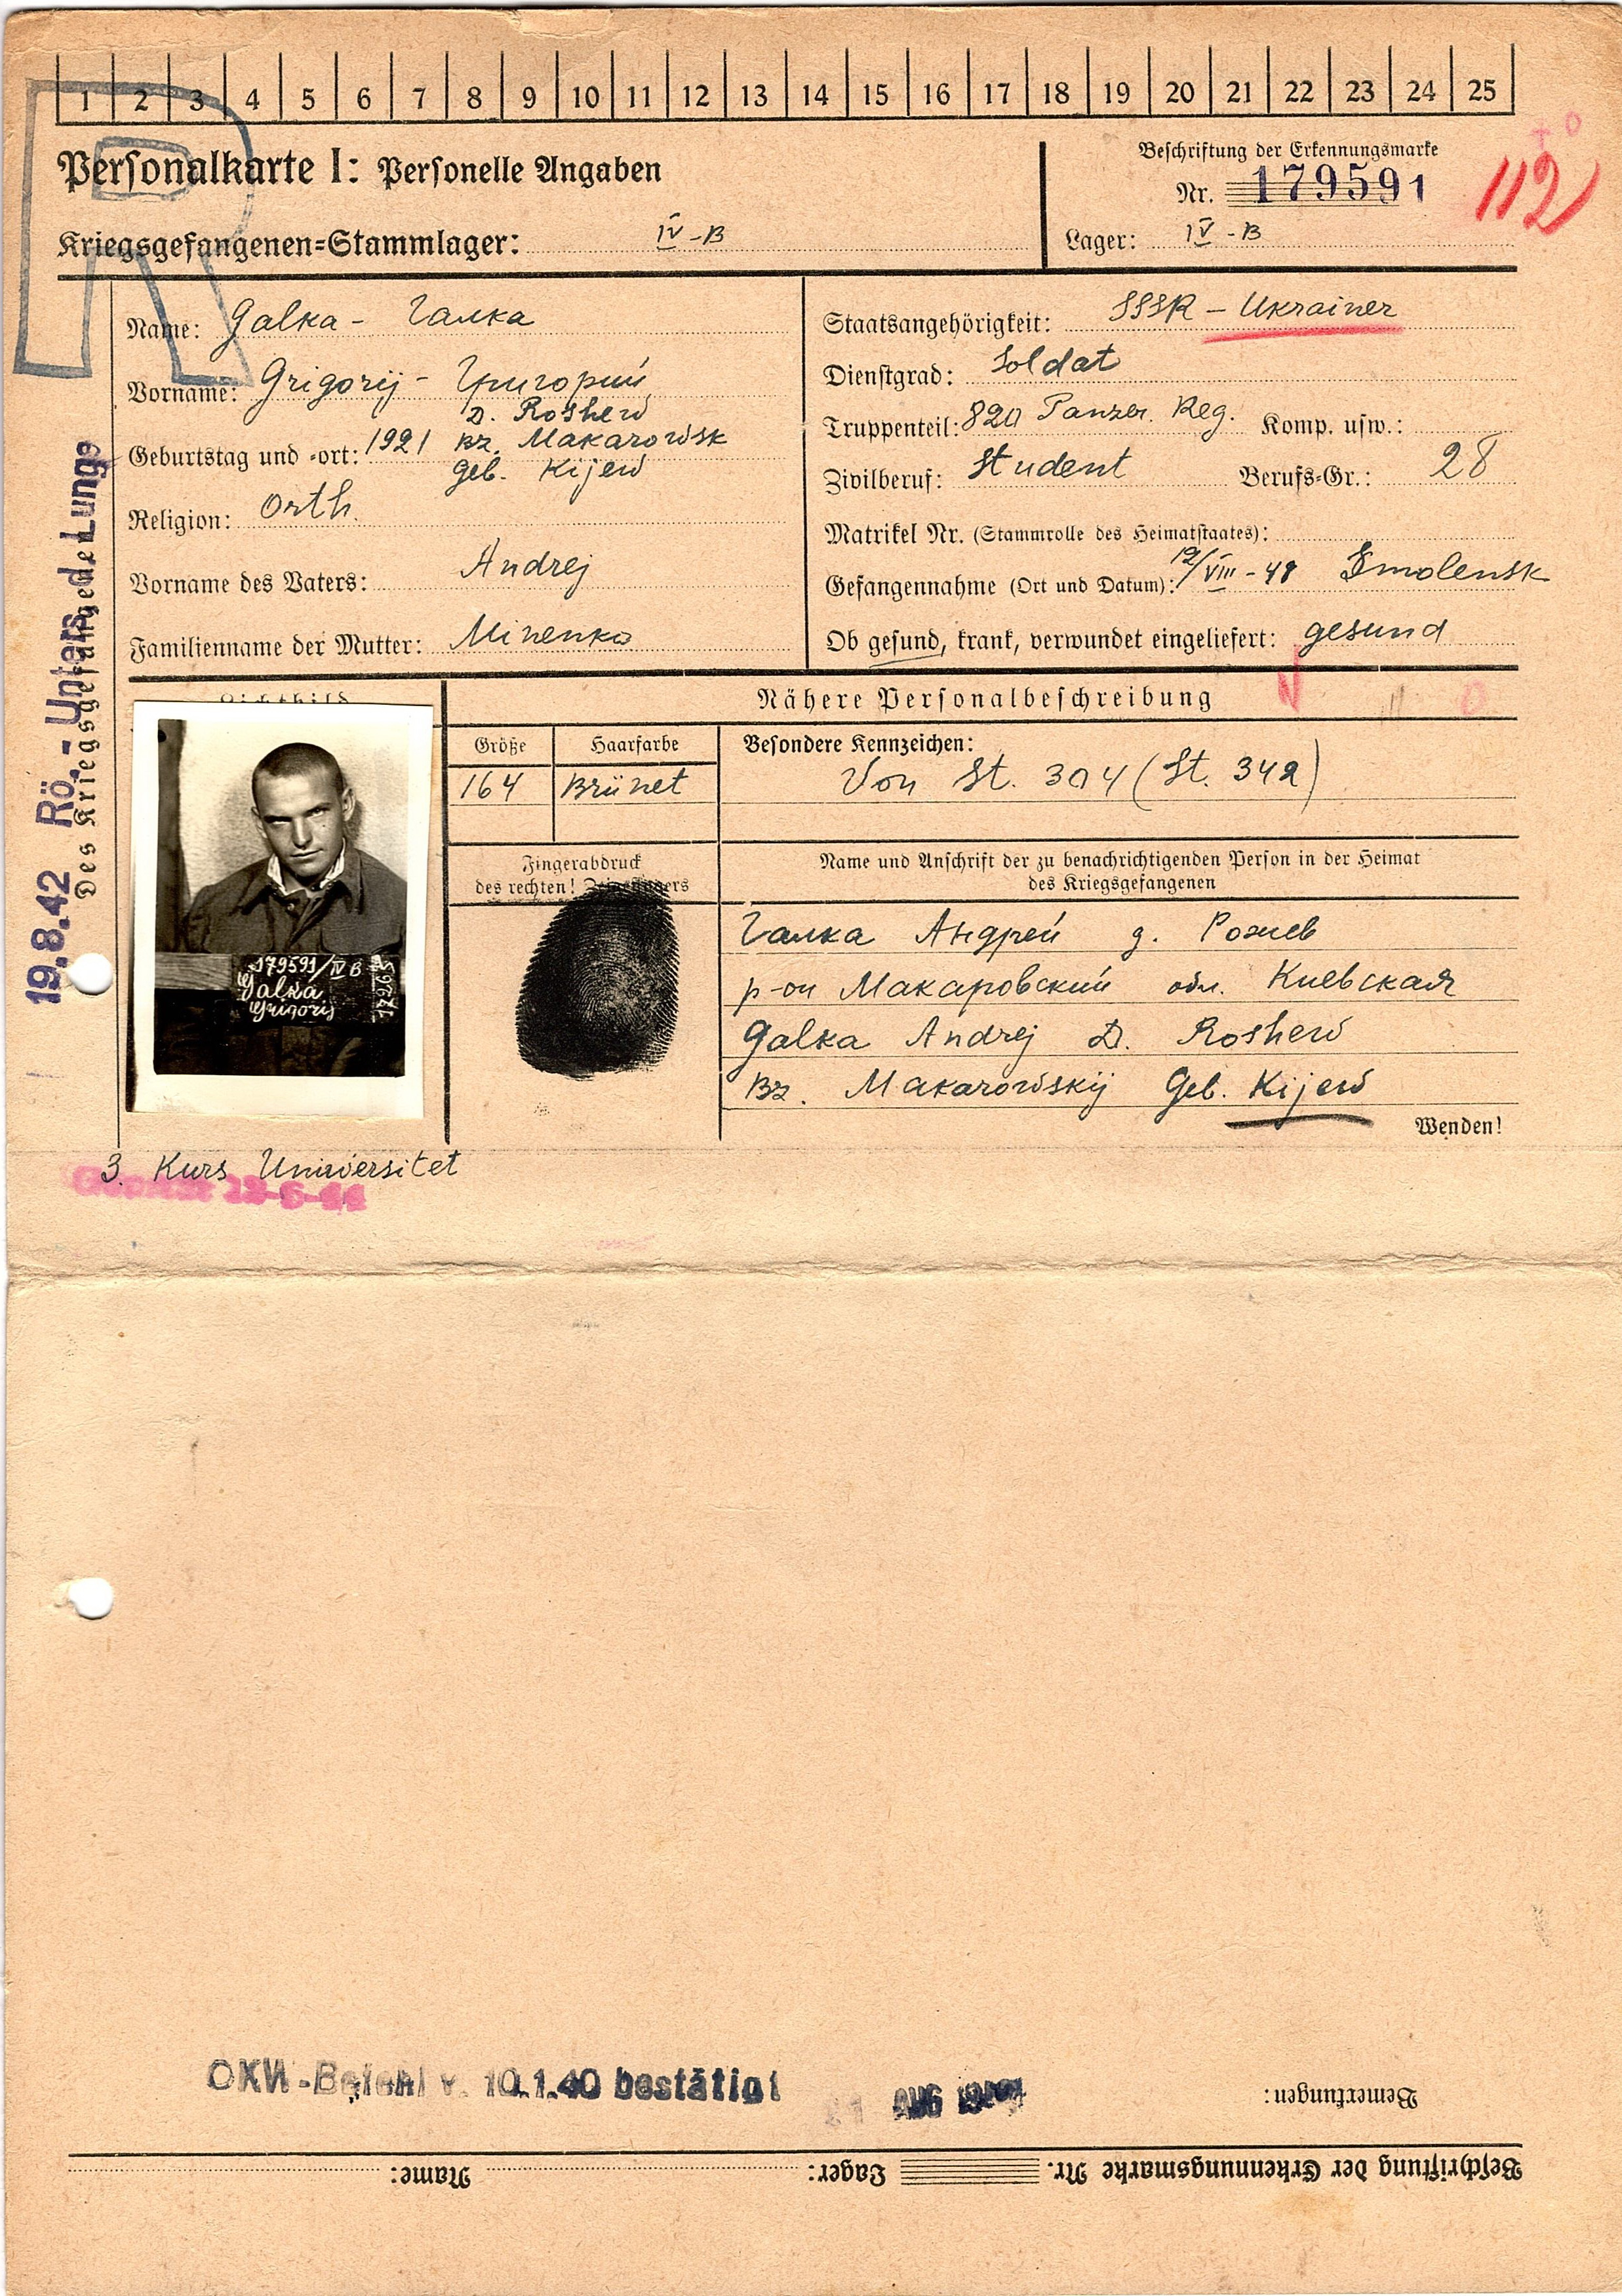 1 2 3 4 5 6 7 8 9 10 11 12 13 14 15 16 17 18 19 20 21 22 23 24 25
Personalkarte I: Personelle Angaben
Kriegsgefangenen-Stammlager: IV-B
Beschriftung der Erkennungsmarke
Nr. 179591
Lager: IV-B
112
Name: Galka - Галка
Vorname: Grigorij - Григорий
D. Roshew
Geburtstag und -ort: 1921 Bz. Makarowsk
Geb. Kijew
Religion: Orth.
Vorname des Vaters: Andrej
Familienname der Mutter: Minenko
Staatsangehörigkeit: SSSR - Ukrainer
Dienstgrad: Soldat
Truppenteil: 820 Panzer. Reg. Komp. usw.:
Zivilberuf: Student Berufs-Gr.: 28
Matrikel Nr. (Stammrolle des Heimatstaates):
Gefangennahme (Ort und Datum): Smolensk
Ob gesund, krank, verwundet eingeliefert: gesund
19.8.42 Rö.- Unters. d. Lunge
Des Kriegsgefangenen
Lichtbild
179591/IV B
Galka
Grigorij
Nähere Personalbeschreibung
Größe Haarfarbe Besondere Kennzeichen:
164 Brünet Von St. 304 (St. 342)
Fingerabdruck
des rechten! Zeigefingers
Name und Anschrift der zu benachrichtigenden Person in der Heimat
des Kriegsgefangenen
Галка Андрей д. Рожев
р-он Макаровский обл. Киевская
Galka Andrej D. Roshew
Bz. Makarowskij Geb. Kijew
Wenden!
3. Kurs Uniwersitet
OKW-Befehl v. 10.1.40 bestätigt
AUG
Bemerkungen:
Beschriftung der Erkennungsmarke Nr. Lager: Name: